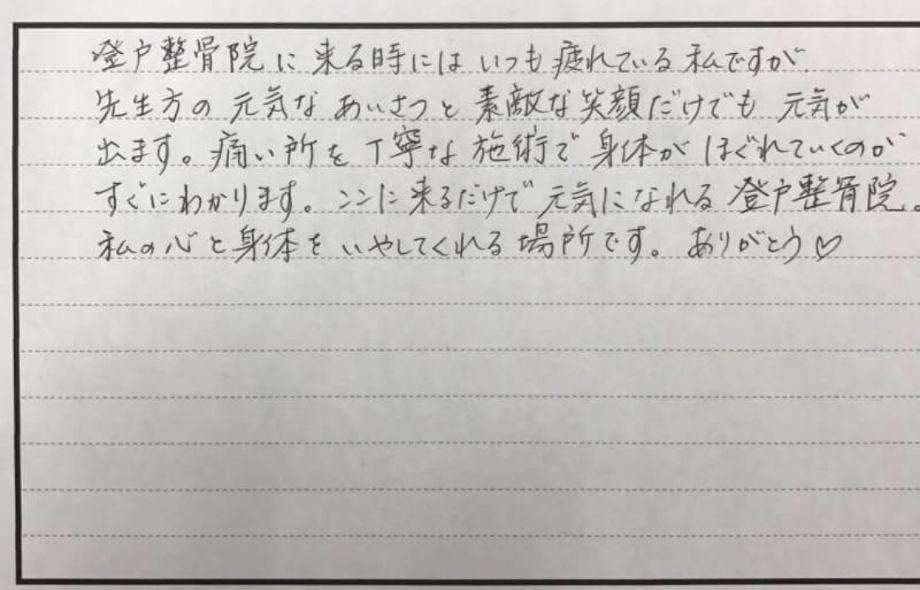 登戸整骨院に来る時にはいつも疲れている私ですが
先生方の元気なあいさつと素敵な笑顔だけでも元気が
出ます。痛い所を丁寧な施術で身体がほぐれていくのが
すぐにわかります。ここに来るだけで元気になれる登戸整骨院。
私の心と身体をいやしてくれる場所です。ありがとう♡